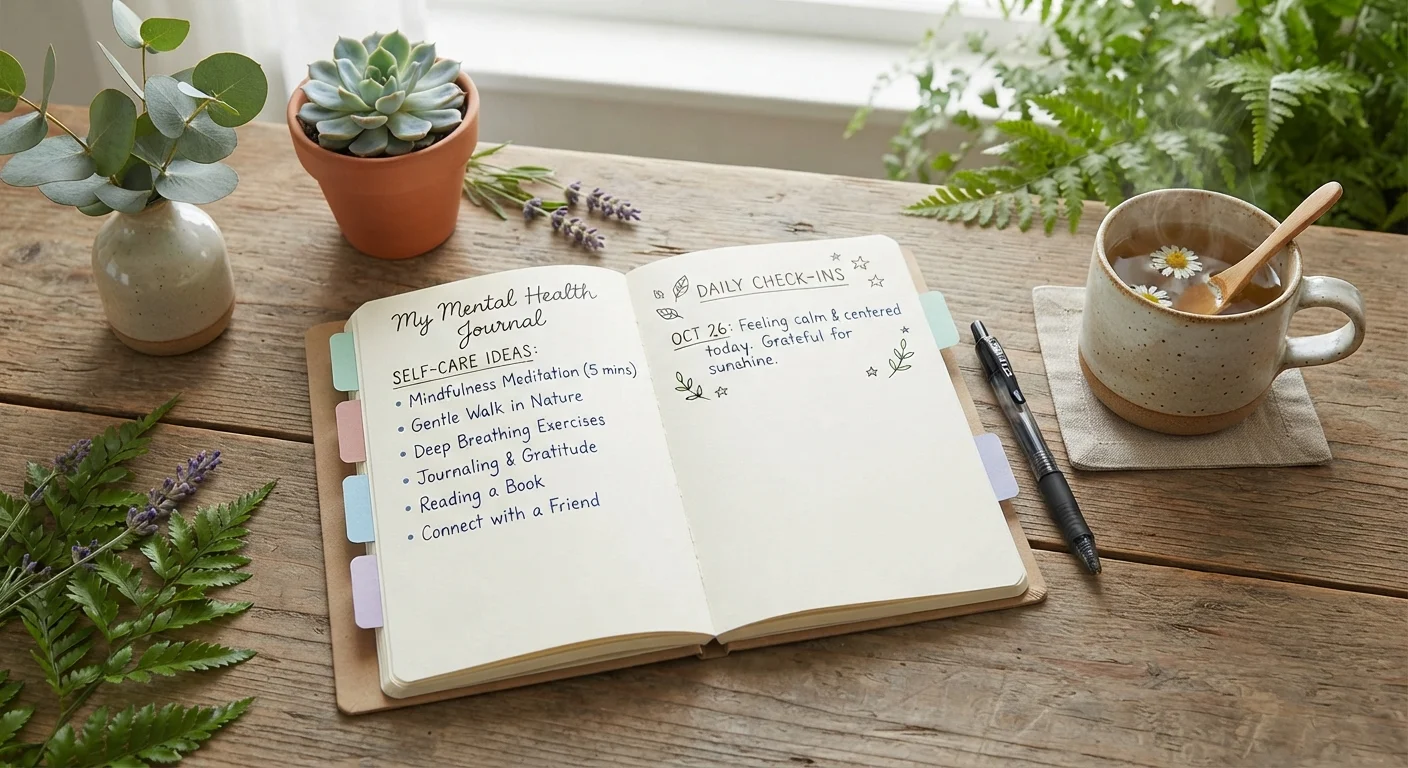 My Mental Health
Journal
SELF-CARE IDEAS:
• Mindfulness Meditation (5 mins)
• Gentle Walk in Nature
• Deep Breathing Exercises
• Journaling & Gratitude
• Reading a Book
• Connect with a Friend
DAILY CHECK-INS
OCT 26: Feeling calm & centered
today. Grateful for
sunchine.